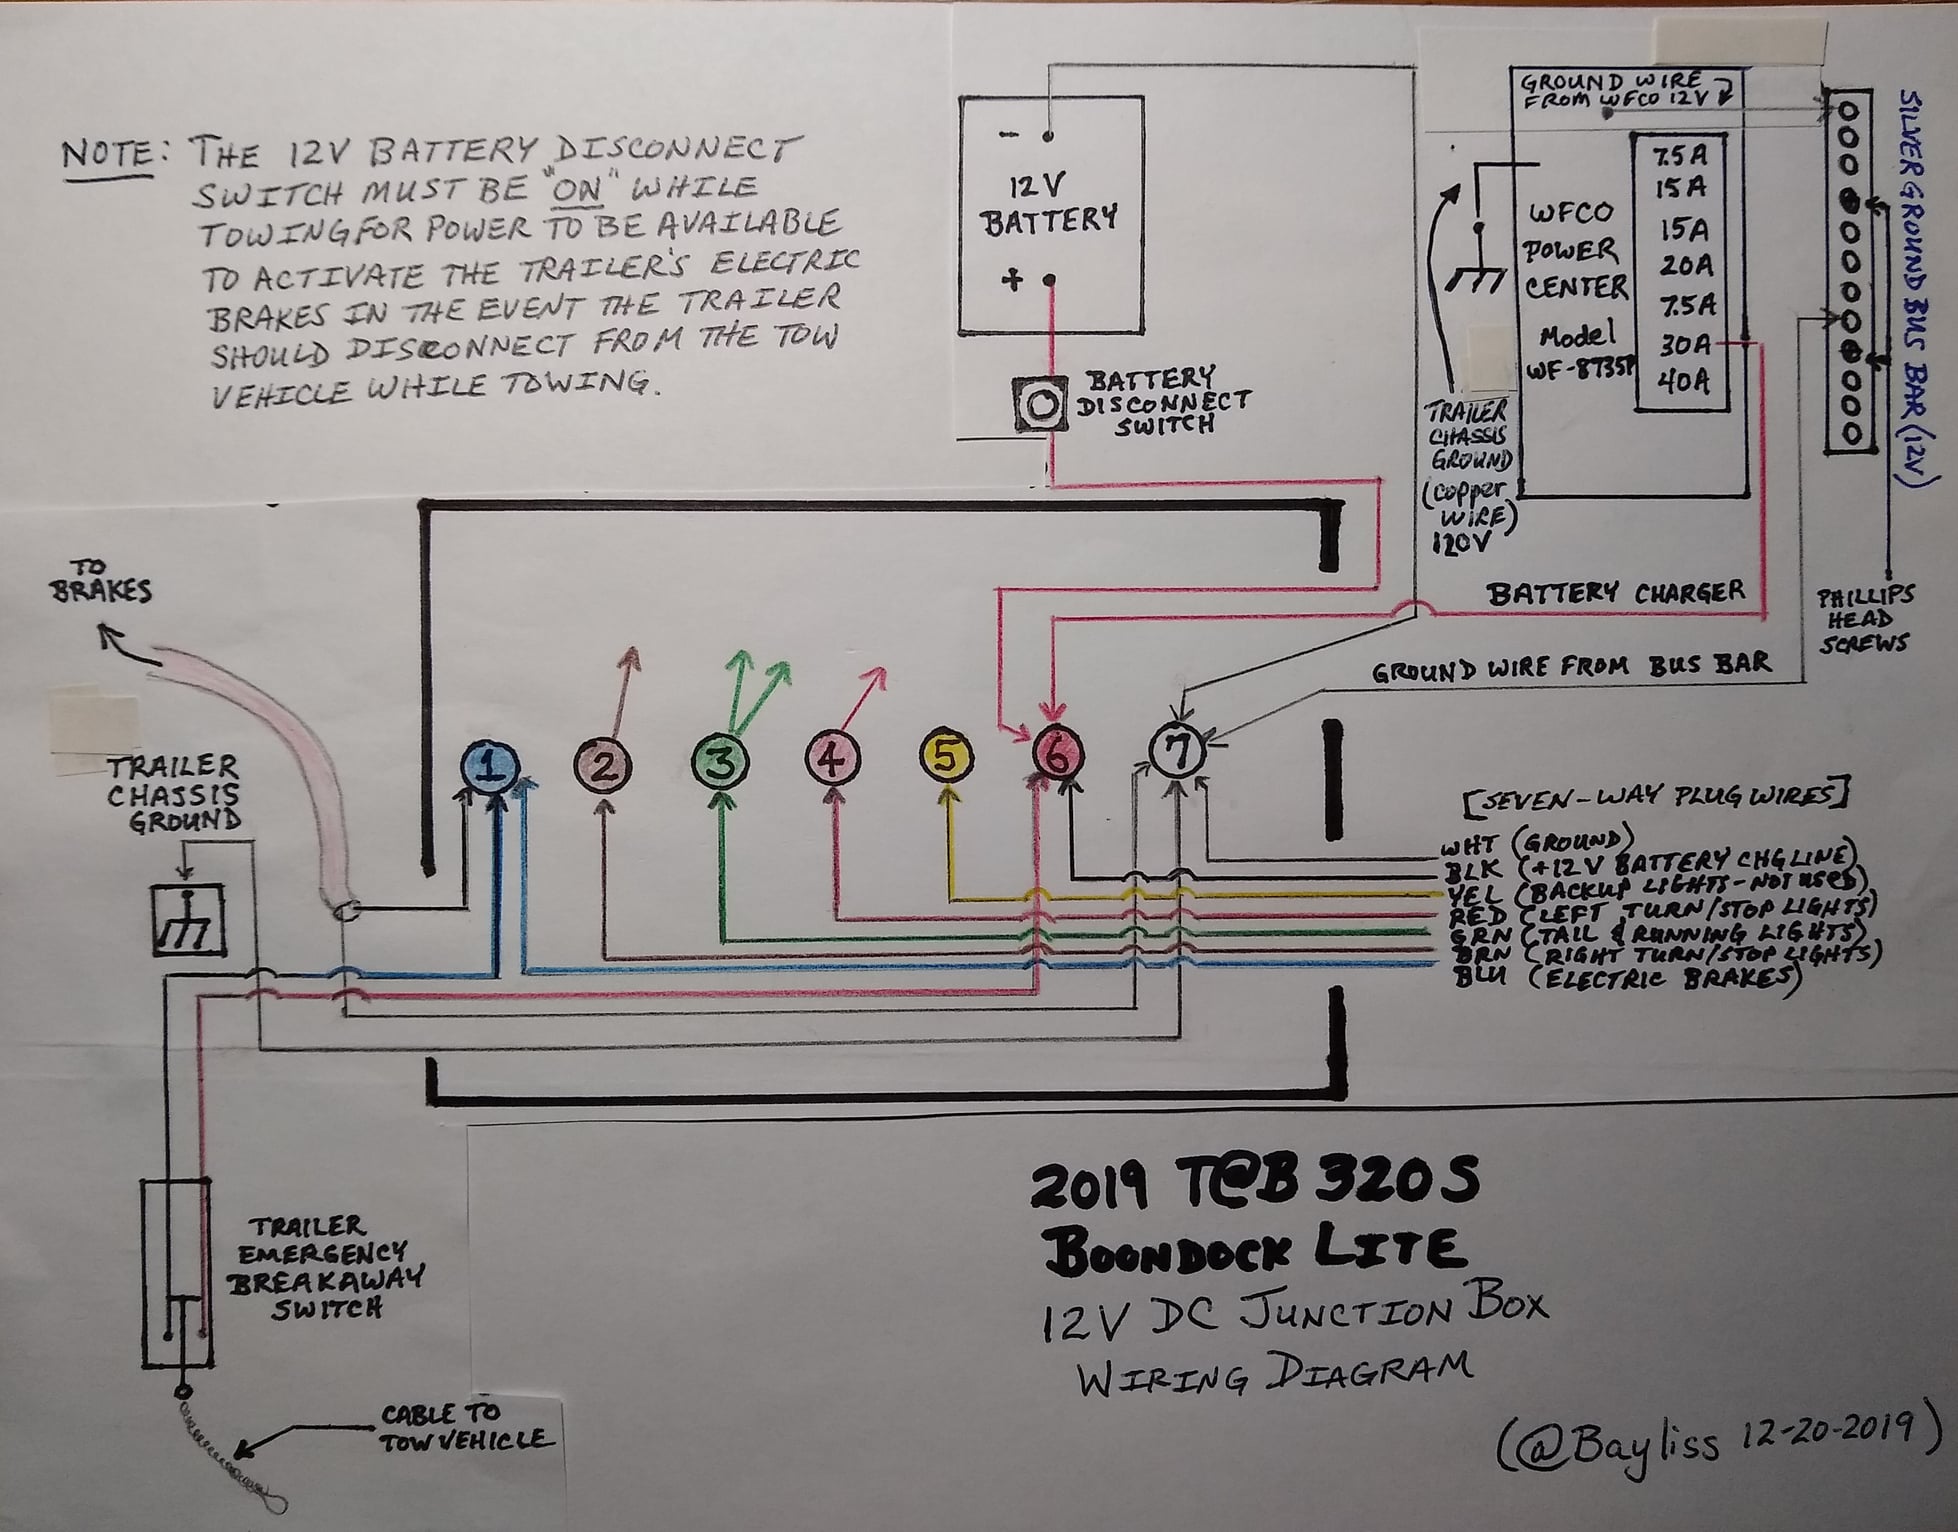 NOTE: THE 12V BATTERY DISCONNECT
SWITCH MUST BE "ON" WHILE
TOWING FOR POWER TO BE AVAILABLE
TO ACTIVATE THE TRAILER'S ELECTRIC
BRAKES IN THE EVENT THE TRAILER
SHOULD DISCONNECT FROM THE TOW
VEHICLE WHILE TOWING.
-
12V
BATTERY
+
BATTERY
DISCONNECT
SWITCH
GROUND WIRE
FROM WFCO 12V
WFCO
POWER
CENTER
Model
WF-8735P
7.5A
15A
15A
20A
7.5A
30A
40A
SILVER GROUND BUS BAR (12V)
TRAILER
CHASSIS
GROUND
(COPPER
WIRE)
120V
PHILLIPS
HEAD
SCREWS
BATTERY CHARGER
GROUND WIRE FROM BUS BAR
TO
BRAKES
1
2
3
4
5
6
7
TRAILER
CHASSIS
GROUND
[SEVEN-WAY PLUG WIRES]
WHT (GROUND)
BLK (+12V BATTERY CHG LINE)
YEL (BACKUP LIGHTS-NOT USED)
RED (LEFT TURN/STOP LIGHTS)
GRN (TAIL & RUNNING LIGHTS)
BRN (RIGHT TURN/STOP LIGHTS)
BLU (ELECTRIC BRAKES)
TRAILER
EMERGENCY
BREAKAWAY
SWITCH
CABLE TO
TOW VEHICLE
2019 T@B 320 S
BOONDOCK LITE
12V DC JUNCTION BOX
WIRING DIAGRAM
(@Bayliss 12-20-2019)